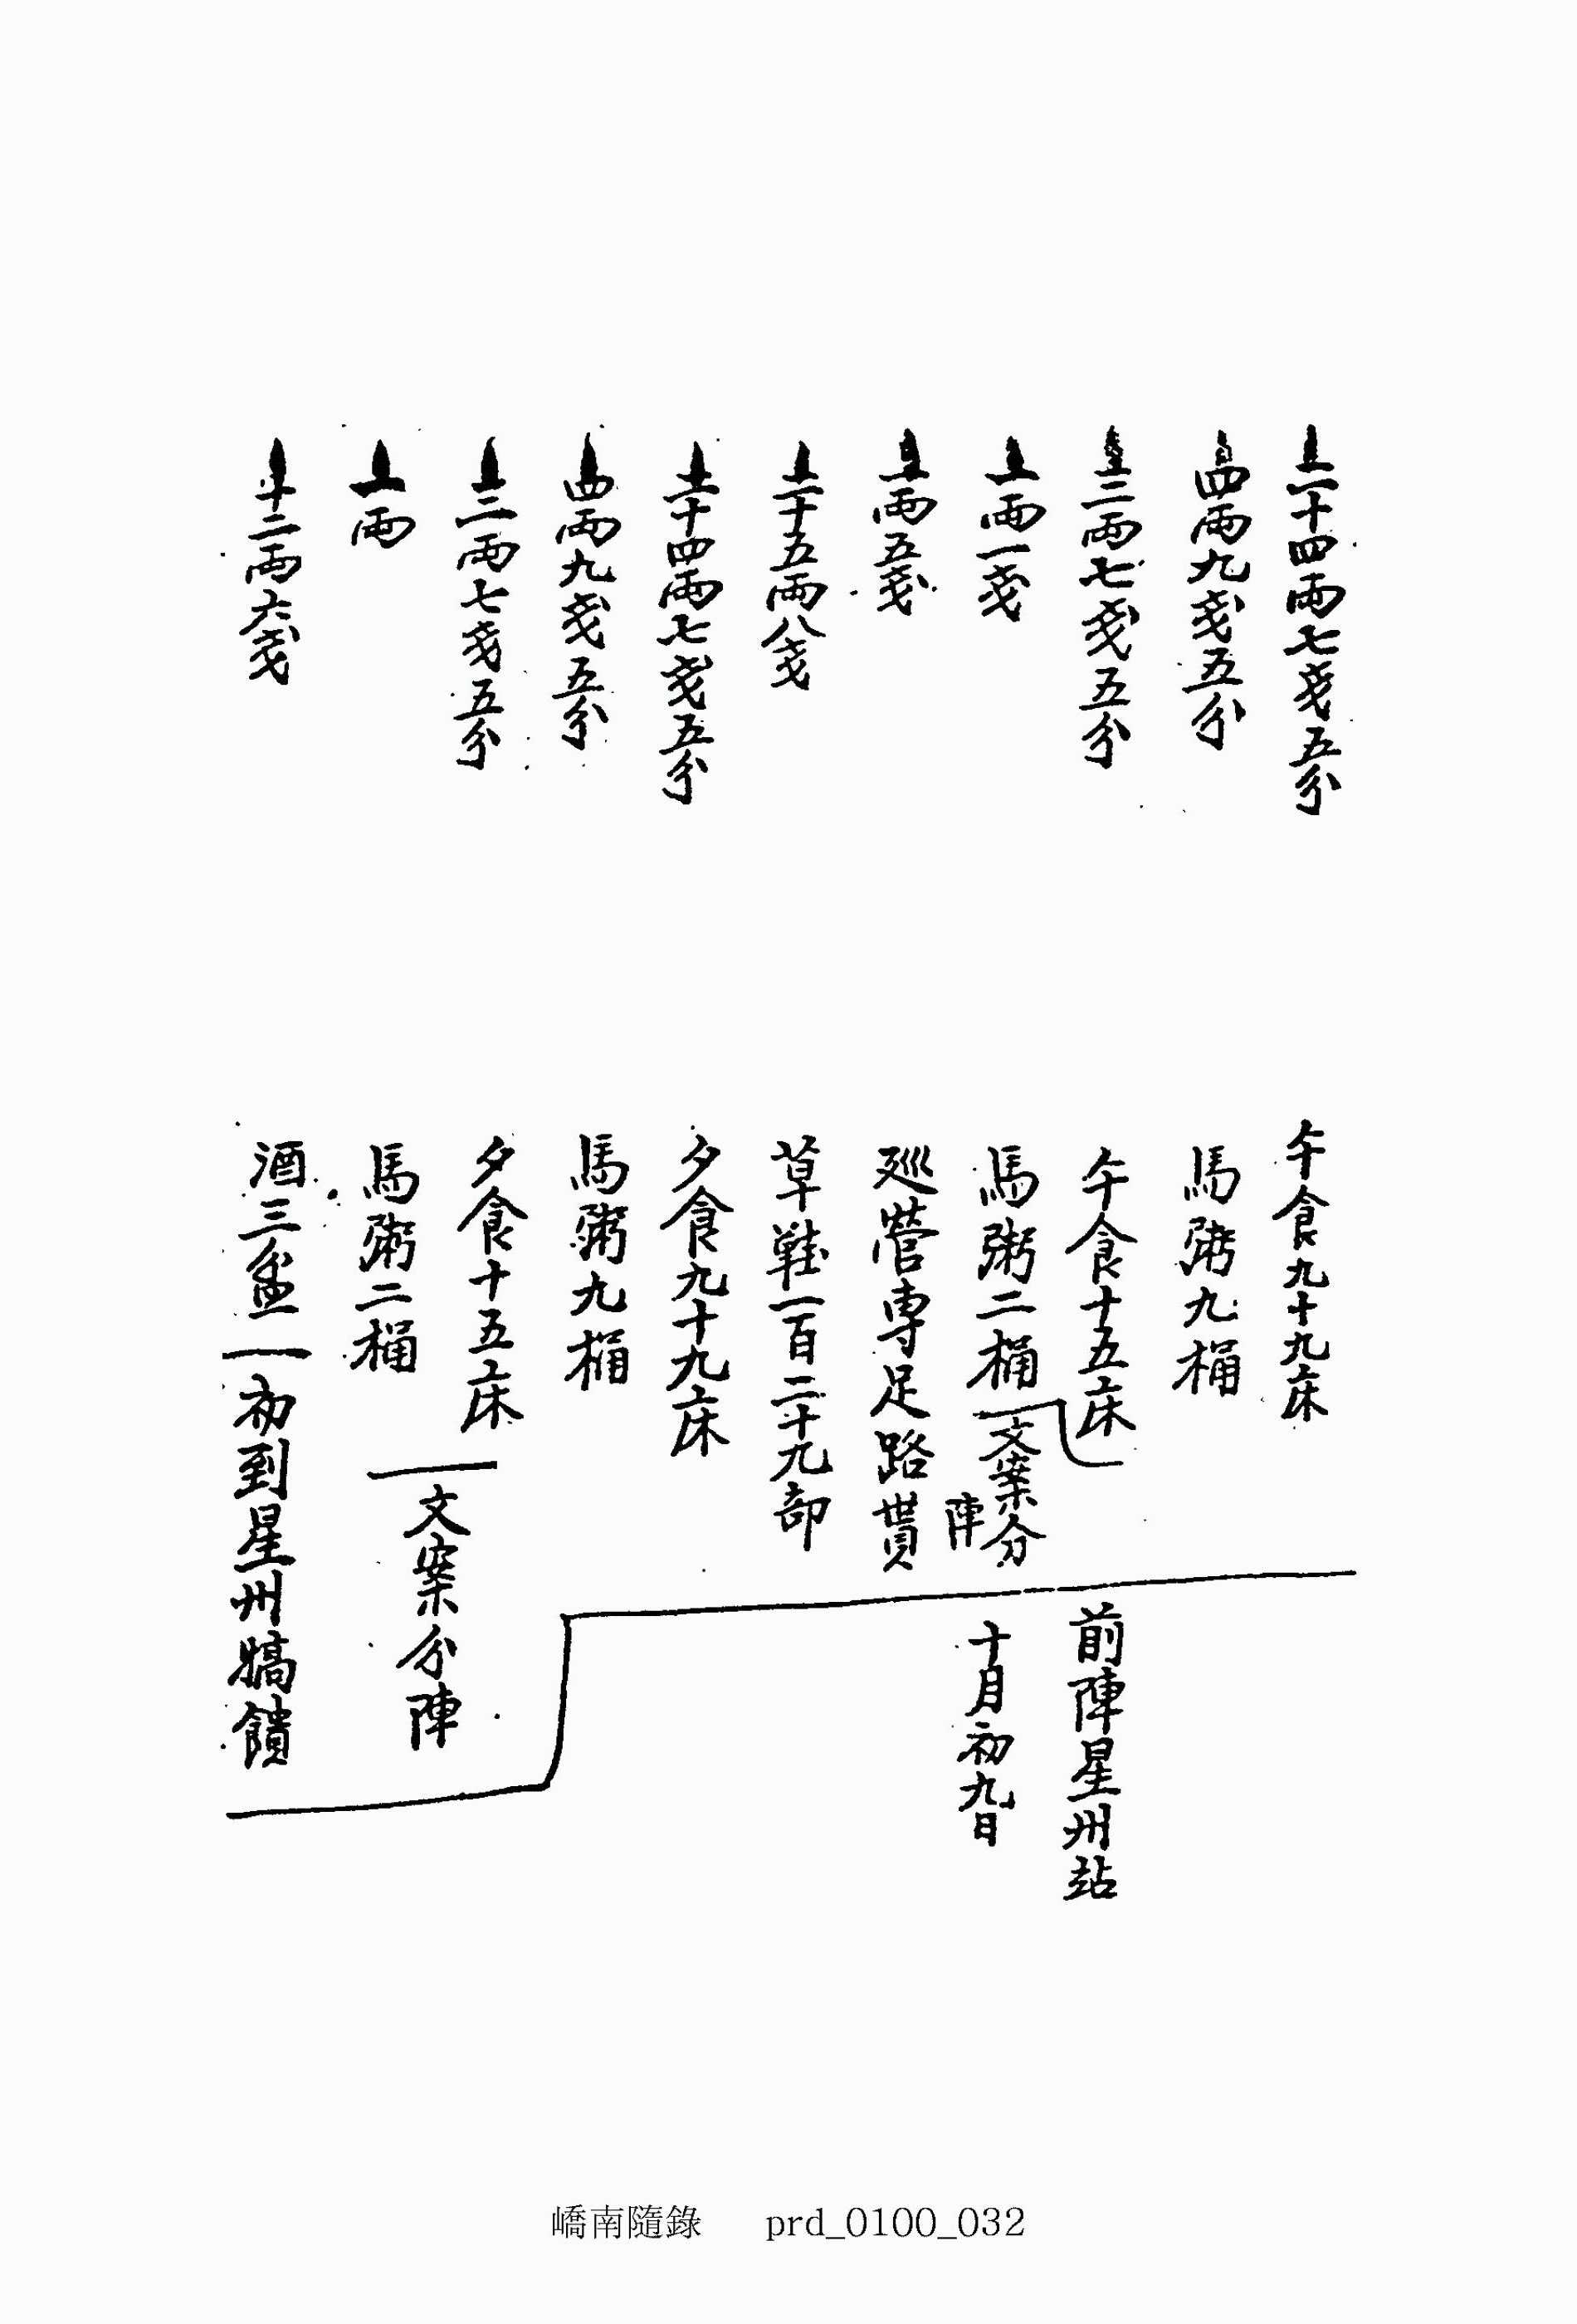 二十四両七戔五分 午食九十九床
四両九戔五分 馬粥九桶
三両七戔五分 午食十五床
一両一戔 馬粥二桶 文案分陣
前陣星州站
十月初九日
両五戔 廵營專足路貰
二十五両八戔 草鞋一百二十九部
二十四両七戔五分 夕食九十九床
四両九戔五分 馬粥九桶
三両七戔五分 夕食十五床
一両 馬粥二桶
文案分陣
十二両六戔 酒三盆 初到星州犒饋
嶠南隨錄 prd_0100_032